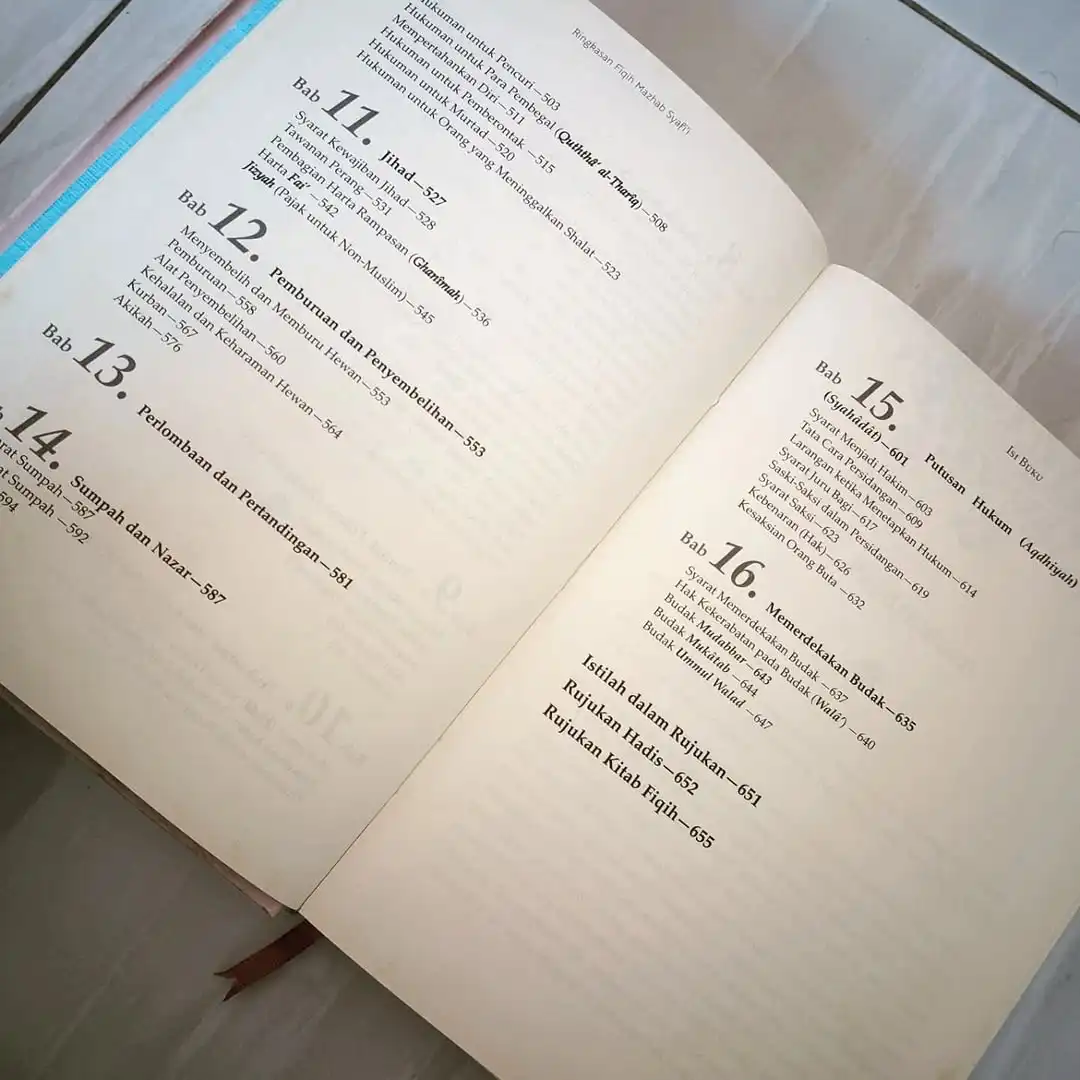 Ringkasan Fiqih Mazhab Syafi'i
Hukuman untuk Pencuri—503
Hukuman untuk Para Pembegal (Quththâ' al-Tharîq)—508
Mempertahankan Diri—511
Hukuman untuk Pemberontak —515
Hukuman untuk Murtad—520
Hukuman untuk Orang yang Meninggalkan Shalat—523
Bab 11. Jihad—527
Syarat Kewajiban Jihad—528
Tawanan Perang—531
Pembagian Harta Rampasan (Ghanîmah)—536
Harta Fai' —542
Jizyah (Pajak untuk Non-Muslim)—545
Bab 12. Pemburuan dan Penyembelihan—553
Menyembelih dan Memburu Hewan—553
Pemburuan—558
Alat Penyembelihan—560
Kehalalan dan Keharaman Hewan—564
Kurban—567
Akikah—576
Bab 13. Perlombaan dan Pertandingan—581
14. Sumpah dan Nazar—587
Sumpah—587
Sumpah —592
594
Isi Buku
Bab 15. Putusan Hukum (Aqdhiyah)
(Syahâdât)—601
Syarat Menjadi Hakim—603
Tata Cara Persidangan—609
Larangan ketika Menetapkan Hukum—614
Syarat Juru Bagi—617
Saski-Saksi dalam Persidangan—619
Syarat Saksi—623
Kebenaran (Hak)—626
Kesaksian Orang Buta —632
Bab 16. Memerdekakan Budak—635
Syarat Memerdekakan Budak —637
Hak Kekerabatan pada Budak (Walâ') —640
Budak Mudabbar—643
Budak Mukâtab —644
Budak Ummul Walad —647
Istilah dalam Rujukan—651
Rujukan Hadis—652
Rujukan Kitab Fiqih—655